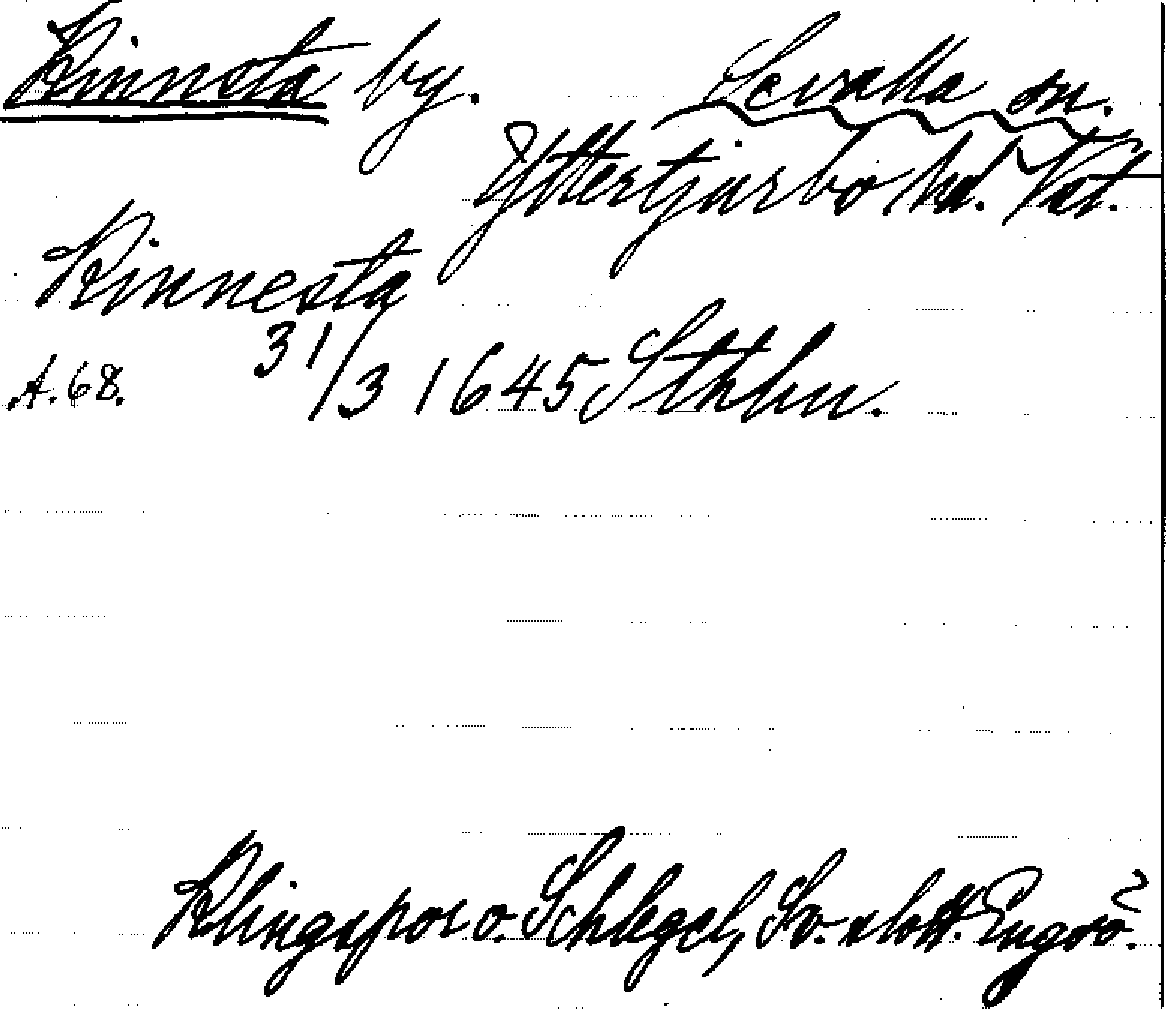 Kinnsta by. Sevalla sn.
Yttertjurbo hd. Vst.
Kinnesta
A.68. 31/3 1645 Sthlm.
Klingspor o. Schlegel, Sv. slott. Engsö.